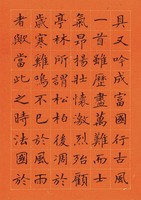 具又吟成富國行古風
一首雖歷盡萬難而士
氣昂揚壯懷激烈殆顧
亭林所謂松柏後凋於
歲寒雞鳴不已於風雨
者歟當此之時法國於